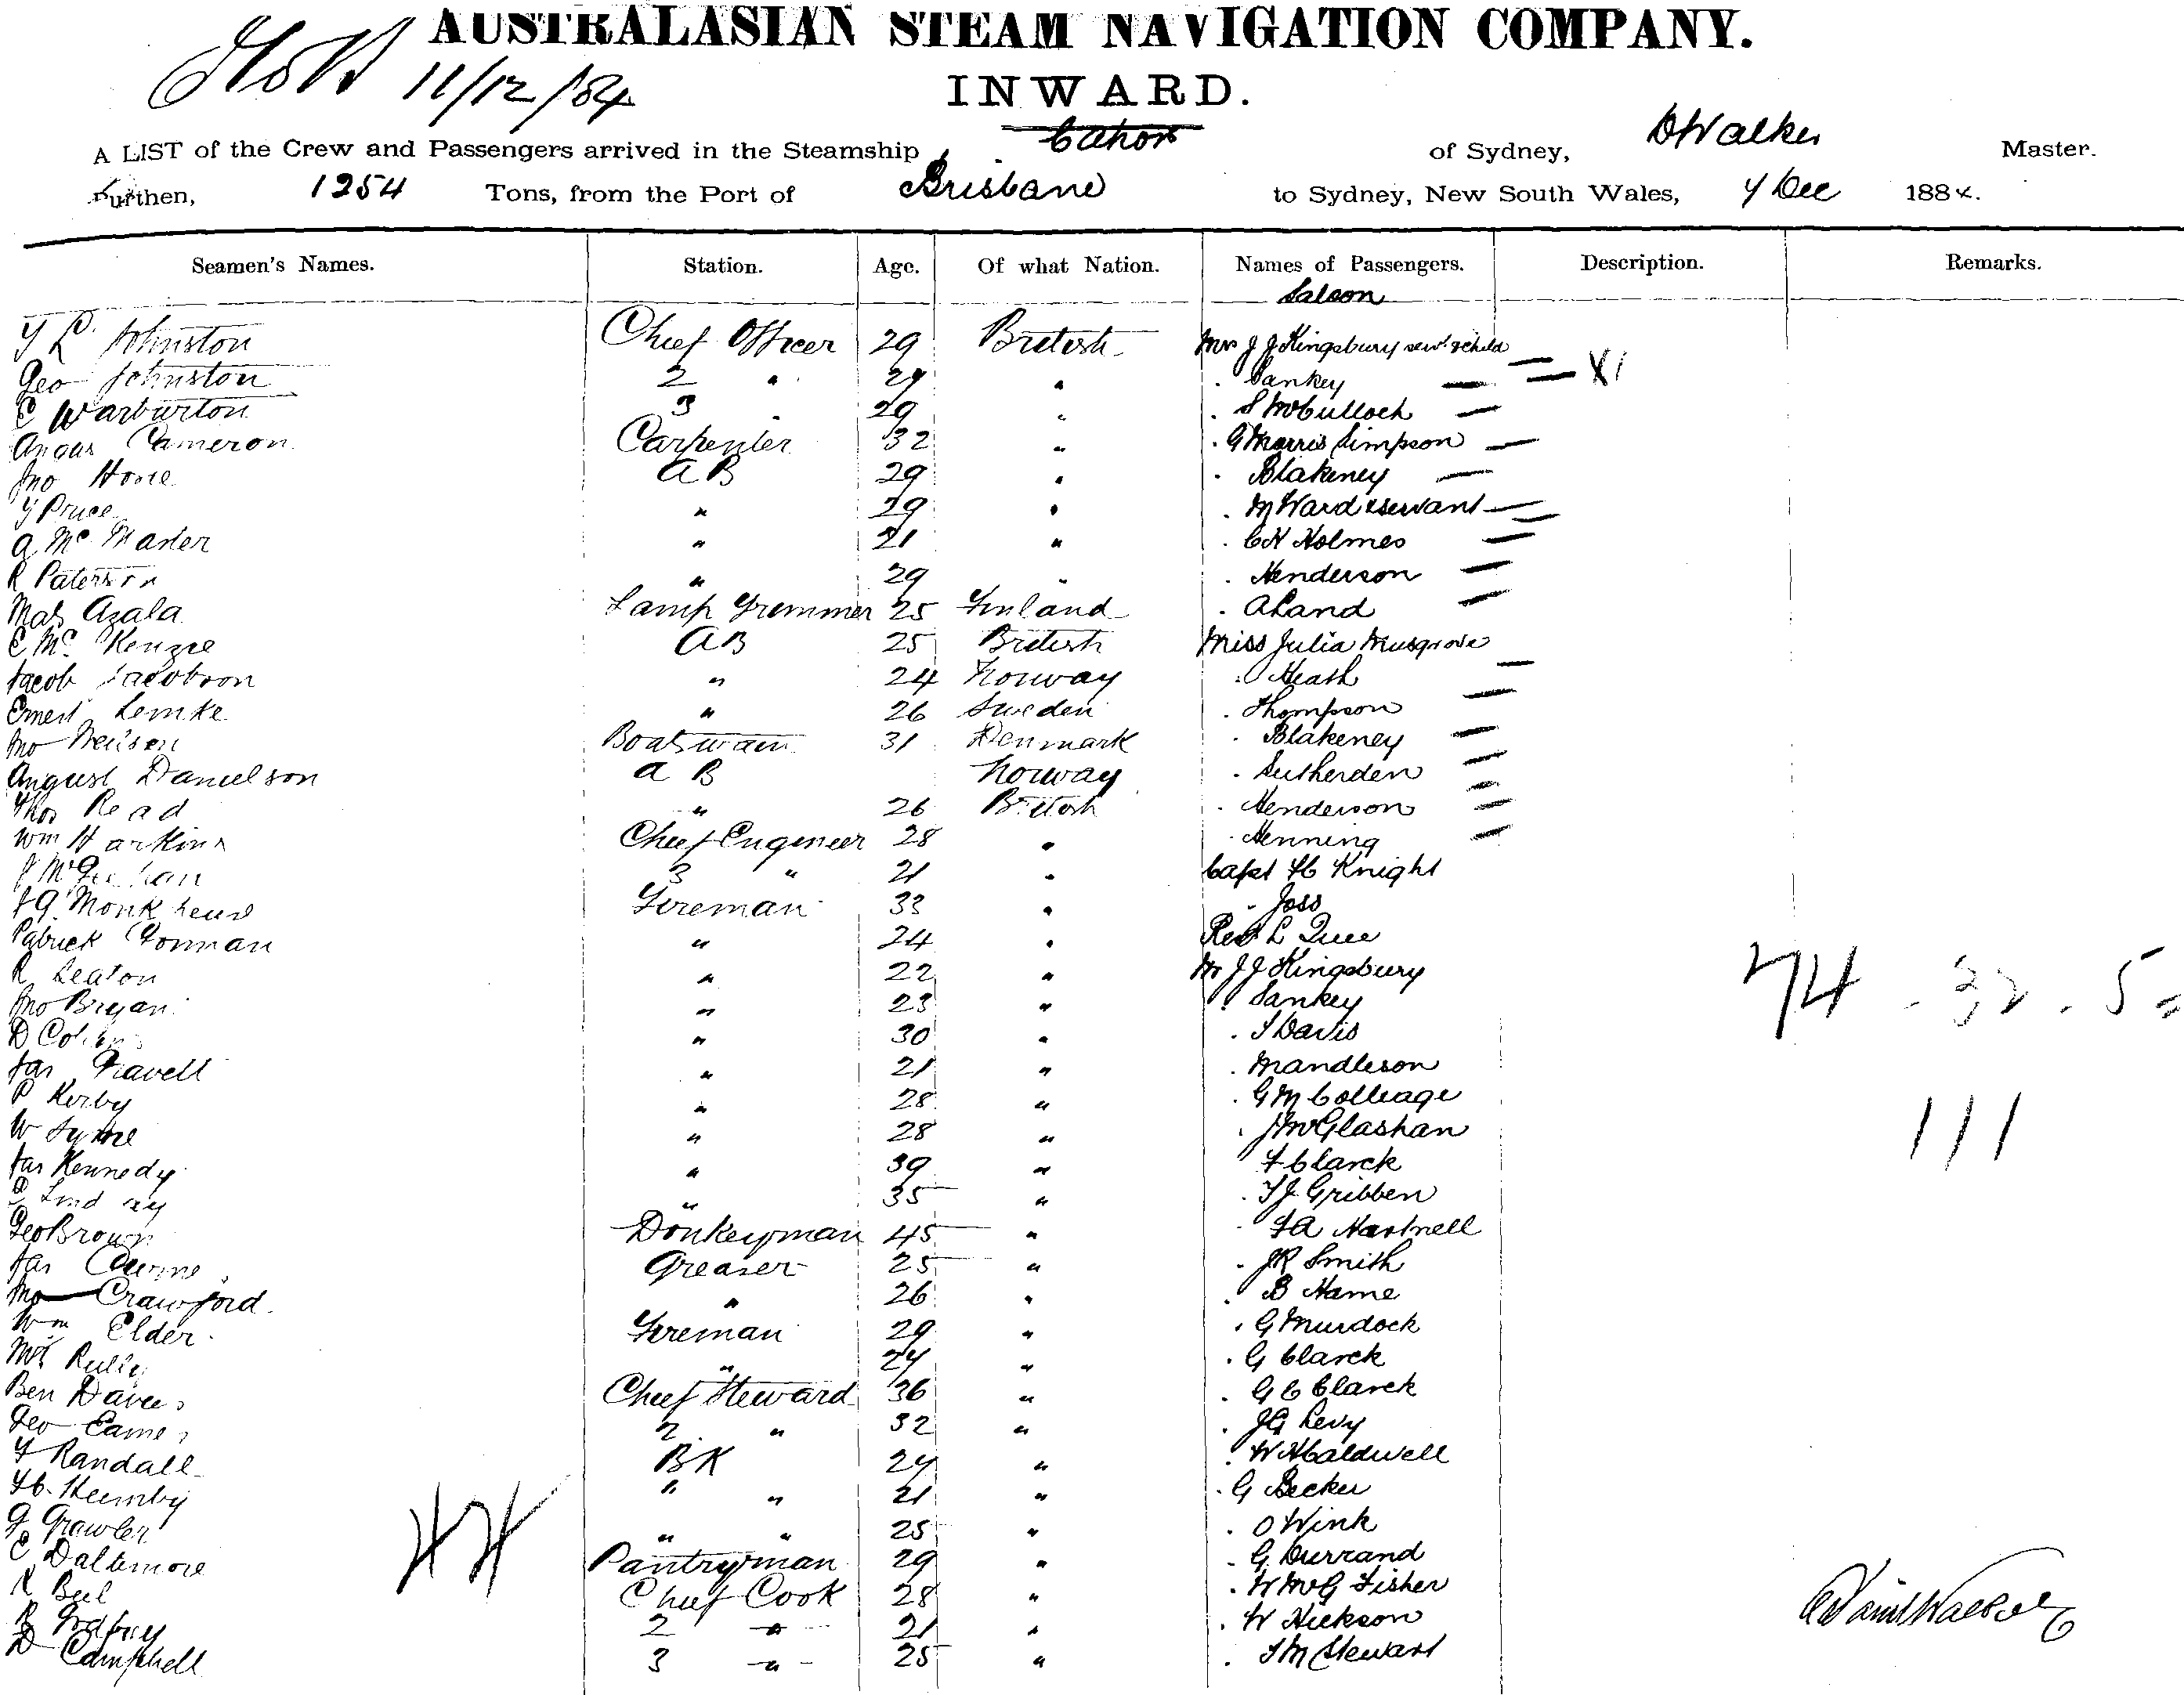 AUSTRALASIAN STEAM NAVIGATION COMPANY.
11/12/84
INWARD.
A LIST of the Crew and Passengers arrived in the Steamship Cahors of Sydney, D Walker Master.
Burthen, 1254 Tons, from the Port of Brisbane to Sydney, New South Wales, 7 Dec 1884.
Seamen's Names. Station. Age. Of what Nation. Names of Passengers. Description. Remarks.
Saloon
Johnston Chief Officer 29 British Mrs J J Kingsbury
Geo Johnston 2 " 27 " " Sankey
C Warburton 3 29 " " S McCulloch
Angus Cameron Carpenter 32 " " G Morris Simpson
Jno Howe A B 29 " " Blakeney
Pruce " 29 " " M Ward & servant
A Mc Master " 21 " " C H Holmes
R Paterson " 29 " " Henderson
Mats Azala Lamp Trimmer 25 Finland " A Land
C Mc Kenzie AB 25 British Miss Julia Musgrove
Jacob Jacobson " 24 Norway " Heath
Ernest Lemke " 26 Sweden " Thompson
Jno Boatswain 31 Denmark " Blakeney
August Danielson A B Norway " Sutherden
Thos Read " 26 British " Henderson
Wm Harkins Chief Engineer 28 " " Henning
3 " 21 " Capt H C Knight
Monkhouse Fireman 33 " " Joss
Patrick Gorman " 24 " Rev L
R Leaton " 22 " Mr J J Kingsbury
74 32 5
Jno Bryan " 23 " " Sankey
D " 30 " " T Davis
Jas Gravell " 21 " " Mandleson
P Kerby " 28 " " G M Colleage
W Syme " 28 " " J McGlashan
111
Jas Kennedy " 39 " F Clarck
" 35 " " T J Gribben
Geo Brown Donkeyman 45 " " F A Hartnell
Jas Greaser 25 " " J R Smith
Jno Crawford " 26 " " B Hame
Wm Elder Fireman 29 " " G Murdock
" 24 " " G Clarck
Ben Davies Chief Steward 36 " " G C Clarck
Geo Eames 2 " 32 " " J G Levy
F Randall BK 24 " " W H Caldwell
" " 21 " " G Becker
G " " 25 " " O Wink
C Daltimore Pantryman 29 " " G Durrand
R Bell Chief Cook 28 " " W McG Fisher
2 " 21 " " W Hickson
D Campbell 3 " 25 " " T M Stewart